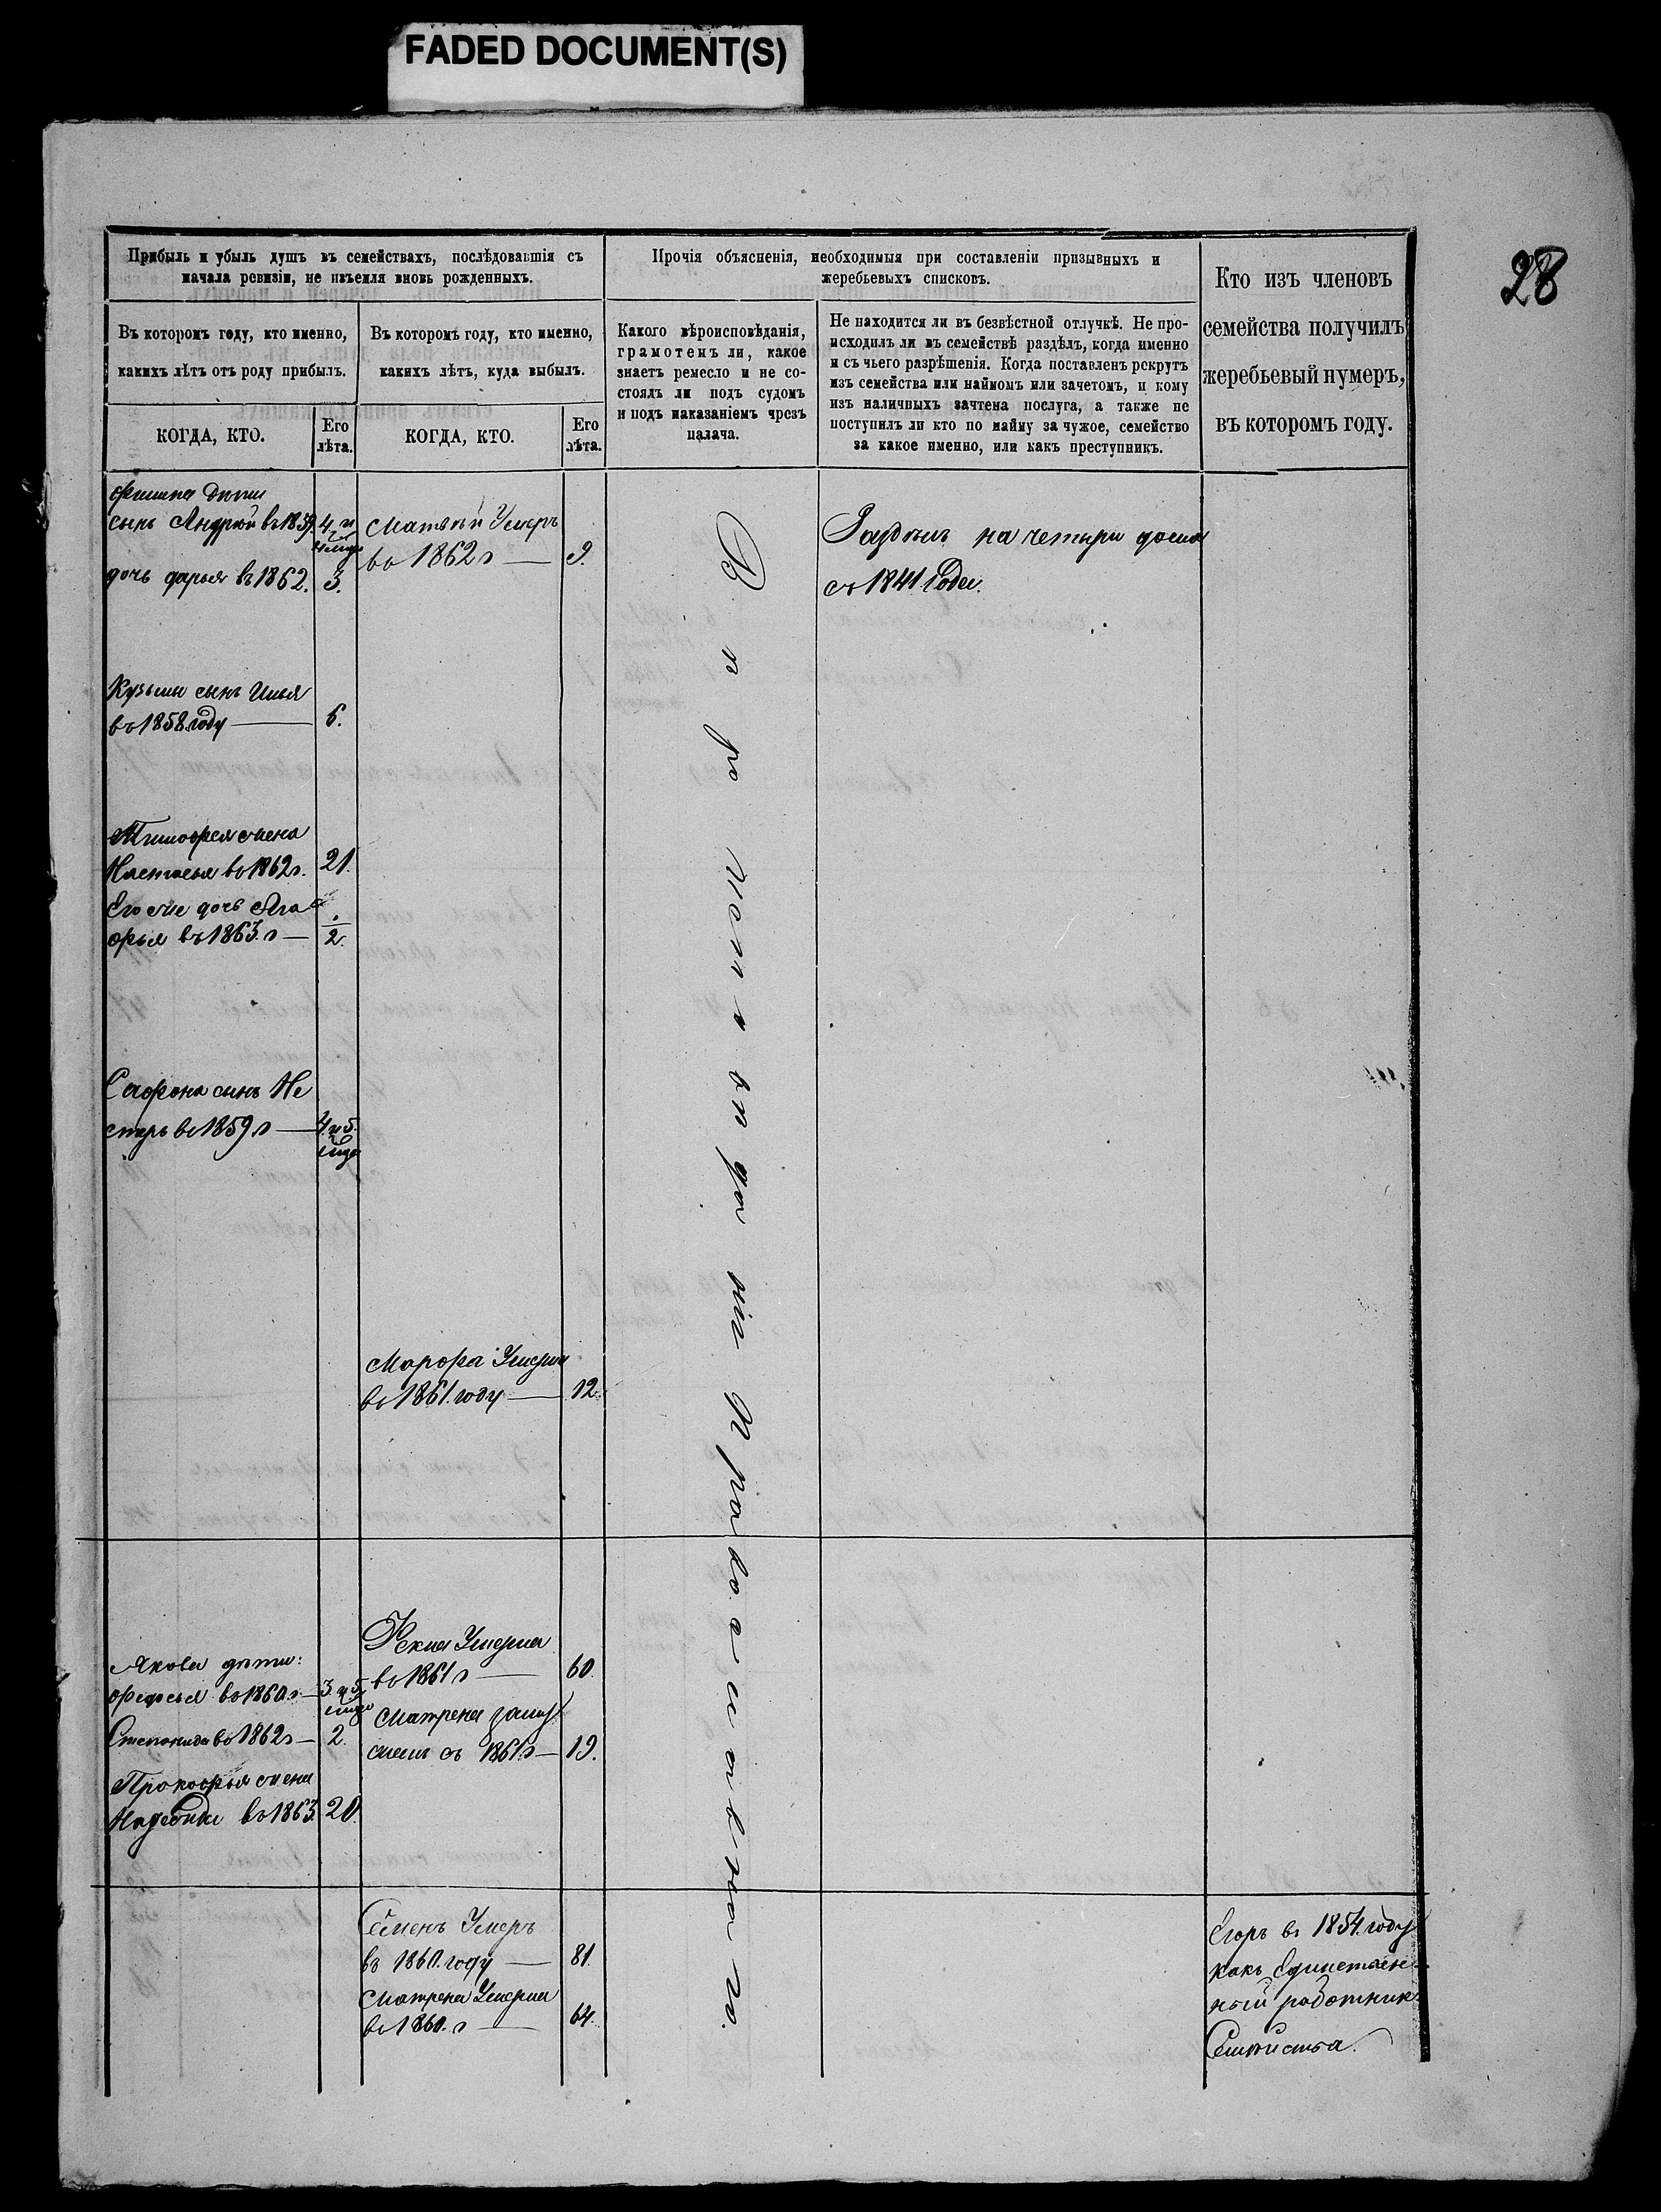 FADED DOCUMENT(S)
28
Прибыль и убыль душъ въ семействахъ, послѣдовавшія съ
начала ревизіи, не изъемля вновь рожденныхъ.
Прочія объясненія, необходимыя при составленіи призывныхъ и
жеребьевыхъ списковъ.
Кто изъ членовъ
семейства получилъ
жеребьевый нумеръ,
въ которомъ году.
Въ которомъ году, кто именно,
какихъ лѣтъ отъ роду прибылъ.
Въ которомъ году, кто именно,
какихъ лѣтъ, куда выбылъ.
Какого вѣроисповѣданія,
грамотенъ ли, какое
знаетъ ремесло и не со-
стоялъ ли подъ судомъ
и подъ наказаніемъ чрезъ
палача.
Не находится ли въ безвѣстной отлучкѣ. Не про-
исходилъ ли въ семействѣ раздѣлъ, когда именно
и съ чьего разрѣшенія. Когда поставленъ рекрутъ
изъ семейства или наймомъ или зачетомъ, и кому
изъ наличныхъ зачтена послуга, а также не
поступилъ ли кто по найму за чужое, семейство
за какое именно, или какъ преступникъ.
КОГДА, КТО.
Его
лѣта.
КОГДА, КТО.
Его
лѣта.
дѣти
сынъ Андрей въ 1859 4. и
дочь дарья въ 1862. 3.
Кузьмы сынъ Илья
въ 1858 году 6.
Тимофея жена
Настасья во 1862 г. 21.
Его же дочь Ага
фья въ 1863. г 2.
Сафона сынъ Не
стеръ во 1859 г 4. и 5.
Якова дѣти:
федосья во 1860 г 3. и 5.
Степанида во 1862 г 2.
Прокофья жена
Надежда во 1863. 20.
Матвѣй Умеръ
во 1862 г 9.
Марфа Умерла
во 1861. году 12.
Фекла Умерла
во 1861 г 60.
Матрена замуж
съ 1861 г 19.
Семенъ Умеръ
въ 1860. году 81.
Матрена Умерла
во 1860. г 64.
Православнаго.
Раздѣлъ на четыри дома
съ 1841 года.
Егоръ въ 1854. году
какъ Единствен
ный работник
Семейства.